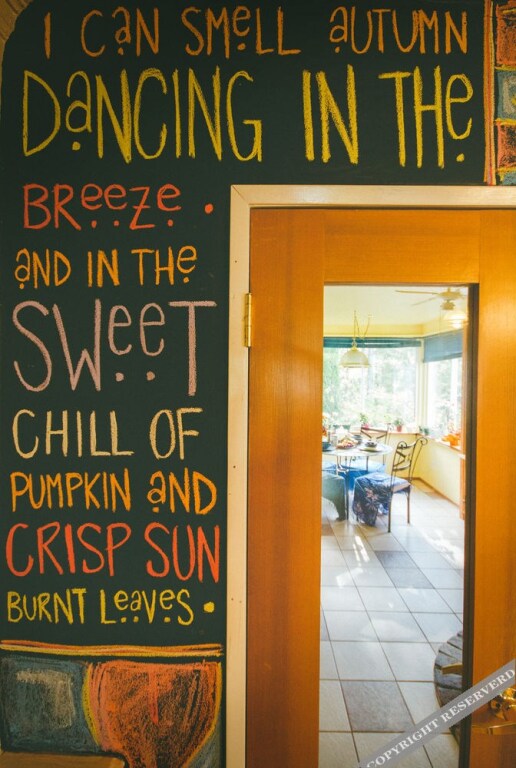 I CaN SMeLL aUTUMN
DaNCING IN THe
BReeZe.
aND IN THe
SWeeT
CHILL OF
PUMPKIN aND
CRISP SUN
BURNT LeaVeS.
COPYRIGHT RESERVED